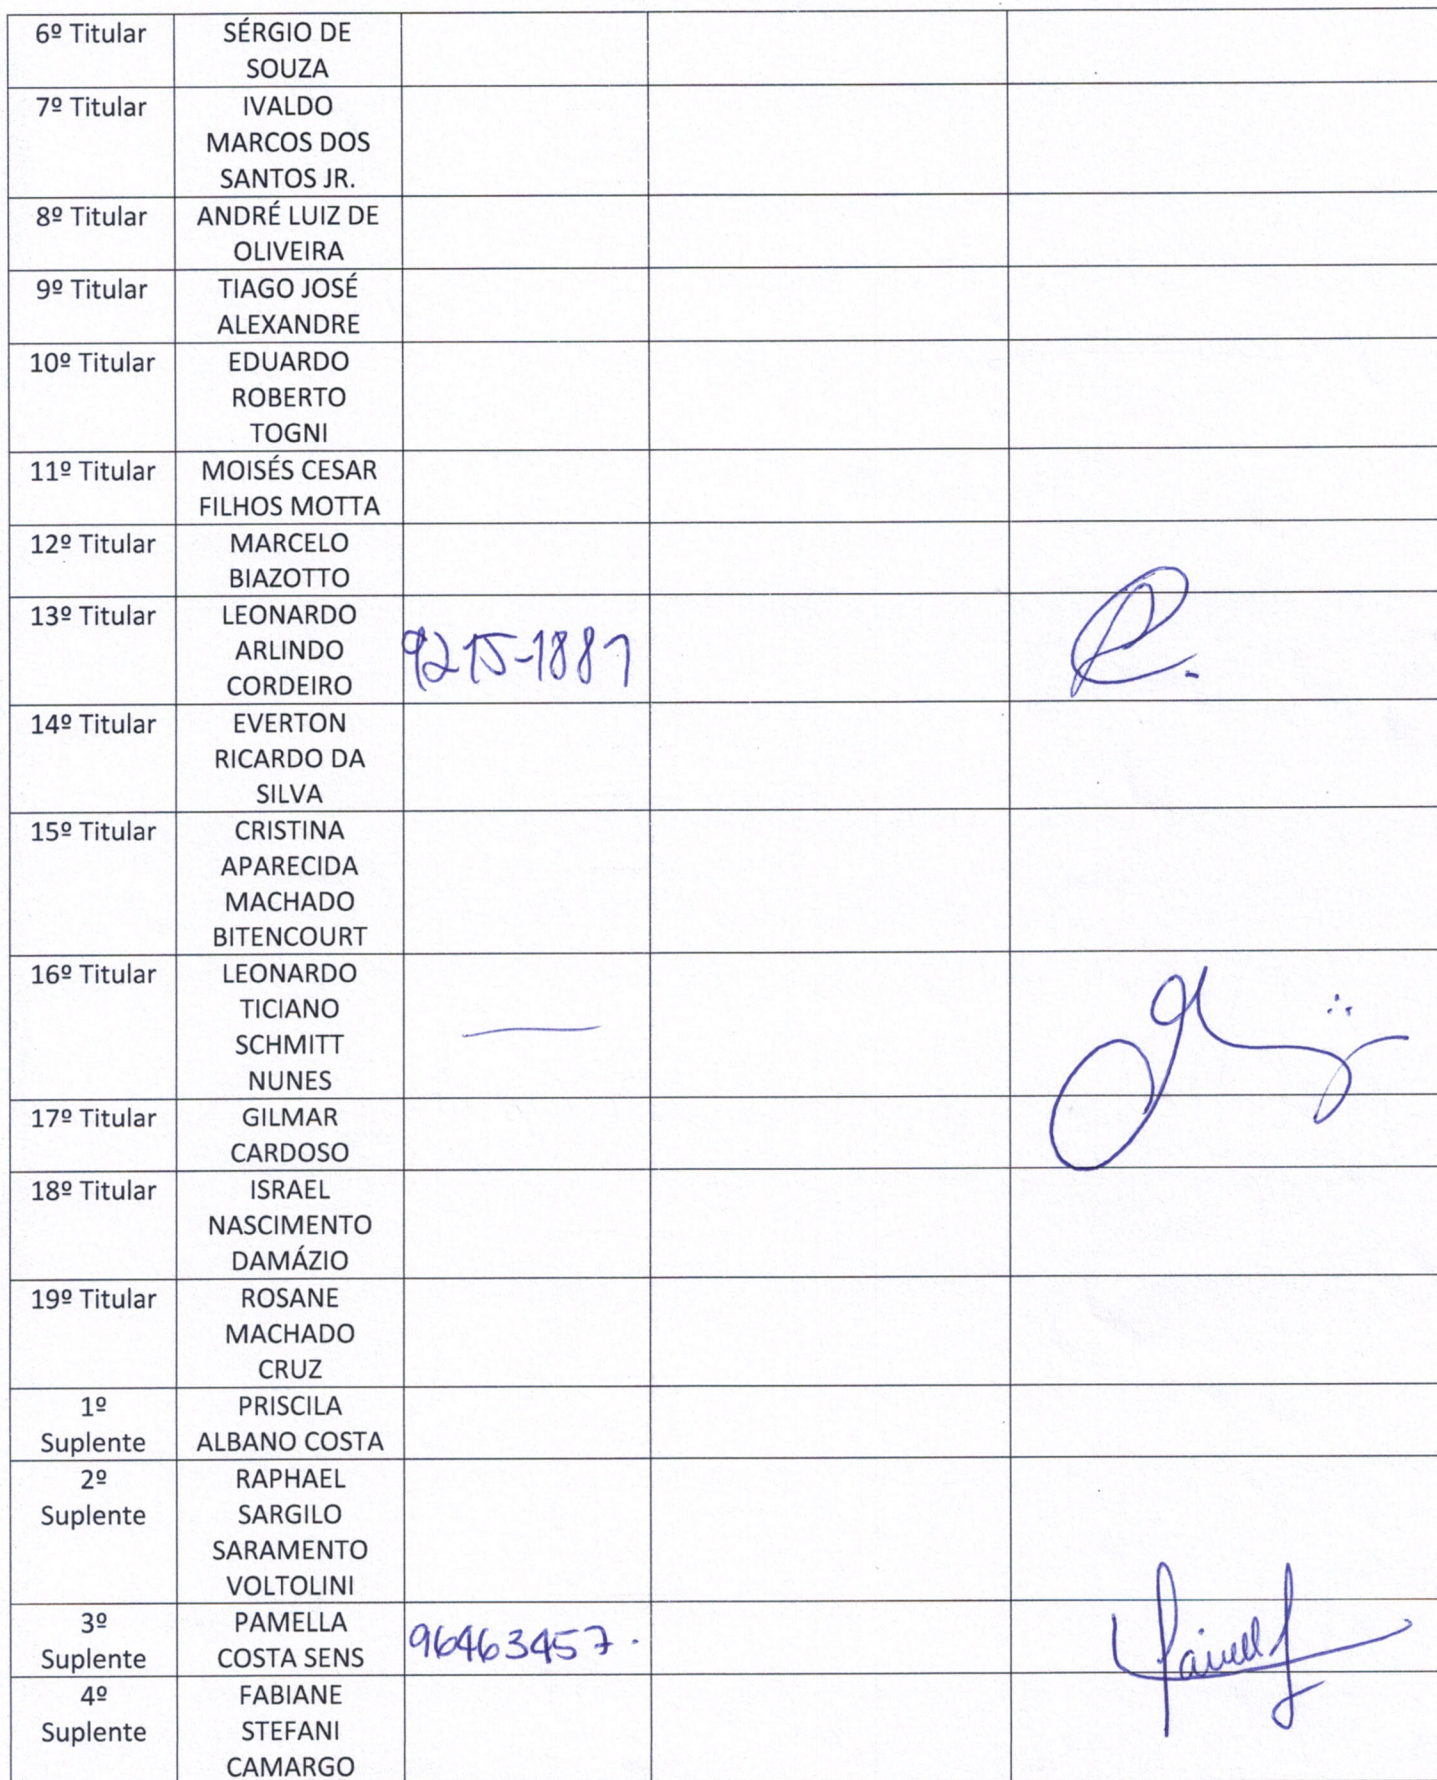 6º Titular SÉRGIO DE
SOUZA
7º Titular IVALDO
MARCOS DOS
SANTOS JR.
8º Titular ANDRÉ LUIZ DE
OLIVEIRA
9º Titular TIAGO JOSÉ
ALEXANDRE
10º Titular EDUARDO
ROBERTO
TOGNI
11º Titular MOISÉS CESAR
FILHOS MOTTA
12º Titular MARCELO
BIAZOTTO
13º Titular LEONARDO
ARLINDO 9215-1881
CORDEIRO
14º Titular EVERTON
RICARDO DA
SILVA
15º Titular CRISTINA
APARECIDA
MACHADO
BITENCOURT
16º Titular LEONARDO
TICIANO
SCHMITT
NUNES
17º Titular GILMAR
CARDOSO
18º Titular ISRAEL
NASCIMENTO
DAMÁZIO
19º Titular ROSANE
MACHADO
CRUZ
1º PRISCILA
Suplente ALBANO COSTA
2º RAPHAEL
Suplente SARGILO
SARAMENTO
VOLTOLINI
3º PAMELLA
Suplente COSTA SENS 96463457.
4º FABIANE
Suplente STEFANI
CAMARGO